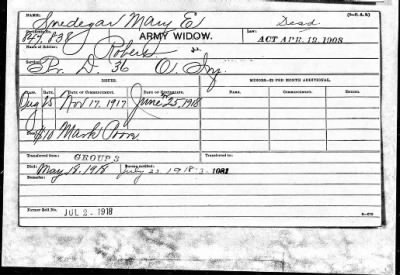 NAME: Snedegar Mary E. Dead (3-C.A.B)
No. 847,838 ARMY WIDOW. Law: ACT APR. 19, 1908
Name of Soldier: Robert
Service: Pvt. D. 36 O. Inf.
ISSUED. MINORS—$2 PER MONTH ADDITIONAL.
CLASS. RATE. DATE OF COMMENCEMENT. DATE OF CERTIFICATE. NAME. COMMENCEMENT. ENDING.
Aug 25 Nov 17. 1917 June 25, 1918
$10
Transferred from: GROUP 3 Transferred to:
Died: May 18, 1918 Bureau notified: July 23 1918
Remarks:
Former Roll No. JUL 2 - 1918